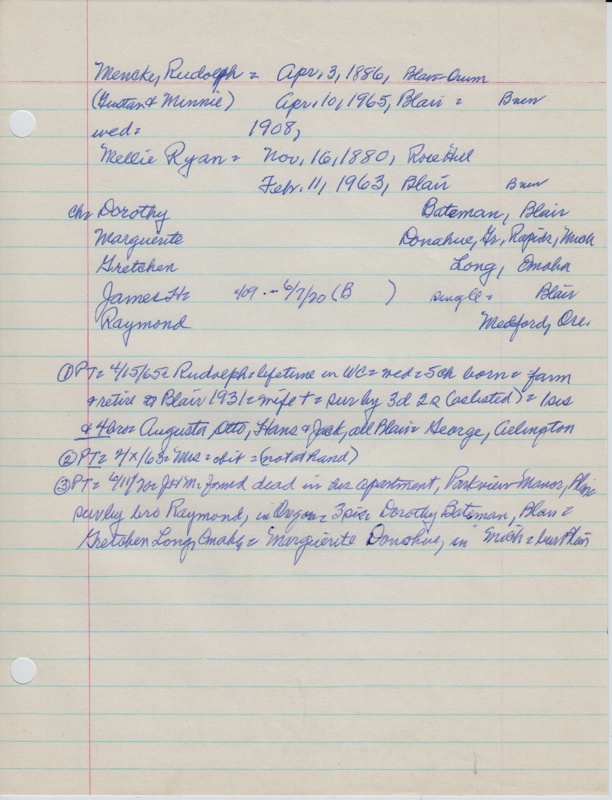 Mencke, Rudolph = Apr. 3, 1886, Blair-Orum
(Gustav & Minnie) Apr. 10, 1965, Blair = Bwen
wed = 1908,
Mellie Ryan = Nov. 16, 1880, Rose Hill
Febr. 11, 1963, Blair Bwen
ch = Dorothy Bateman, Blair
Marguerite Donahue, Gr. Rapids, Mich
Gretchen Long, Omaha
James H = /09 - 6/7/70 (B ) single = Blair
Raymond Medford, Ore.
① PT = 4/15/65 = Rudolph = lifetime in WC = wed = 5ch born = farm
& retire to Blair 1931 = wife + = sur by 3d 2s (as listed) = 1sis
& 4bro = August, Otto, Hans & Jack, all Blair = George, Arlington
② PT = 2/x/63 = Mrs = obit = (not at hand)
③ PT = 6/11/70 = JHM. found dead in his apartment, Parkview Manor,
sur by bro Raymond, in Oregon = 3 sis = Dorothy Bateman, Blair =
Gretchen Long, Omaha = Marguerite Donahue, in Mich = bur Blair